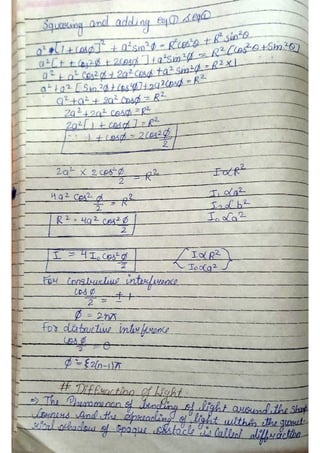 Squaring and adding eq① & eq②
a² [1 + cosø]² + a² sin²ø = R² cos²θ + R² sin²θ
a² [1 + cos²ø + 2cosø] + a² sin²ø = R² [cos²θ + sin²θ]
a² + a² cos²ø + 2a² cosø + a² sin²ø = R² x 1
a² + a² [sin²ø + cos²ø] + 2a² cosø = R²
a² + a² + 2a² cosø = R²
2a² + 2a² cosø = R²
2a² [1 + cosø] = R²
∵ 1 + cosø = 2cos² ø/2
2a² x 2cos² ø/2 = R² I ∝ R²
4a² cos² ø/2 = R² I₁ ∝ a²
R² = 4a² cos² ø/2 I₂ ∝ b²
I₀ ∝ a²
I = 4I₀ cos² ø/2 I ∝ R²
I₀ ∝ a²
For constructive interference
cos ø/2 = ± 1
ø = 2nπ
For distructive interference
cos ø/2 = 0
ø = (2n-1)π
# Diffraction of light
⇒ The Phenomenon of bending of light around the sharp
corners and the spreading of light within the geomet
rical shadow of opaque obstacle is called diffraction